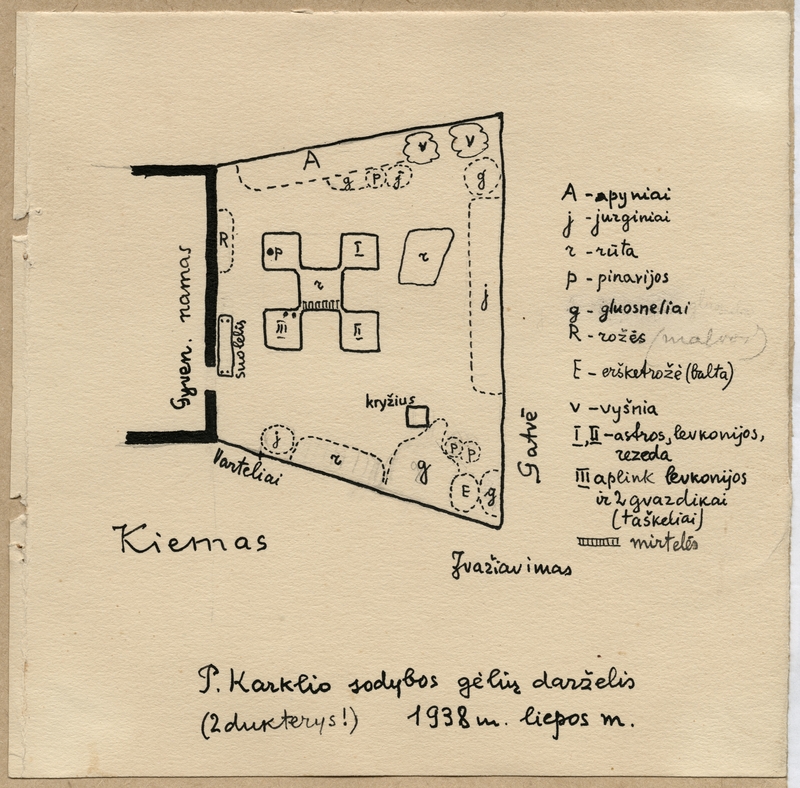 A
v
v
g
p
j
g
A - apyniai
j - jurginiai
r - rūta
p - pinavijos
g - gluosneliai
R - rožės (malvos)
E - erškėtrožė (balta)
v - vyšnia
I, II - astros, levkonijos,
rezeda
III aplink levkonijos
ir 2 gvazdikai
(taškeliai)
mirtelės
R
p
I
r
r
III
II
j
Gyven. namas
suolelis
kryžius
Gatvė
j
r
g
p
p
E
g
Varteliai
Kiemas
Įvažiavimas
P. Karklio sodybos gėlių darželis
(2 dukterys!) 1938 m. liepos m.